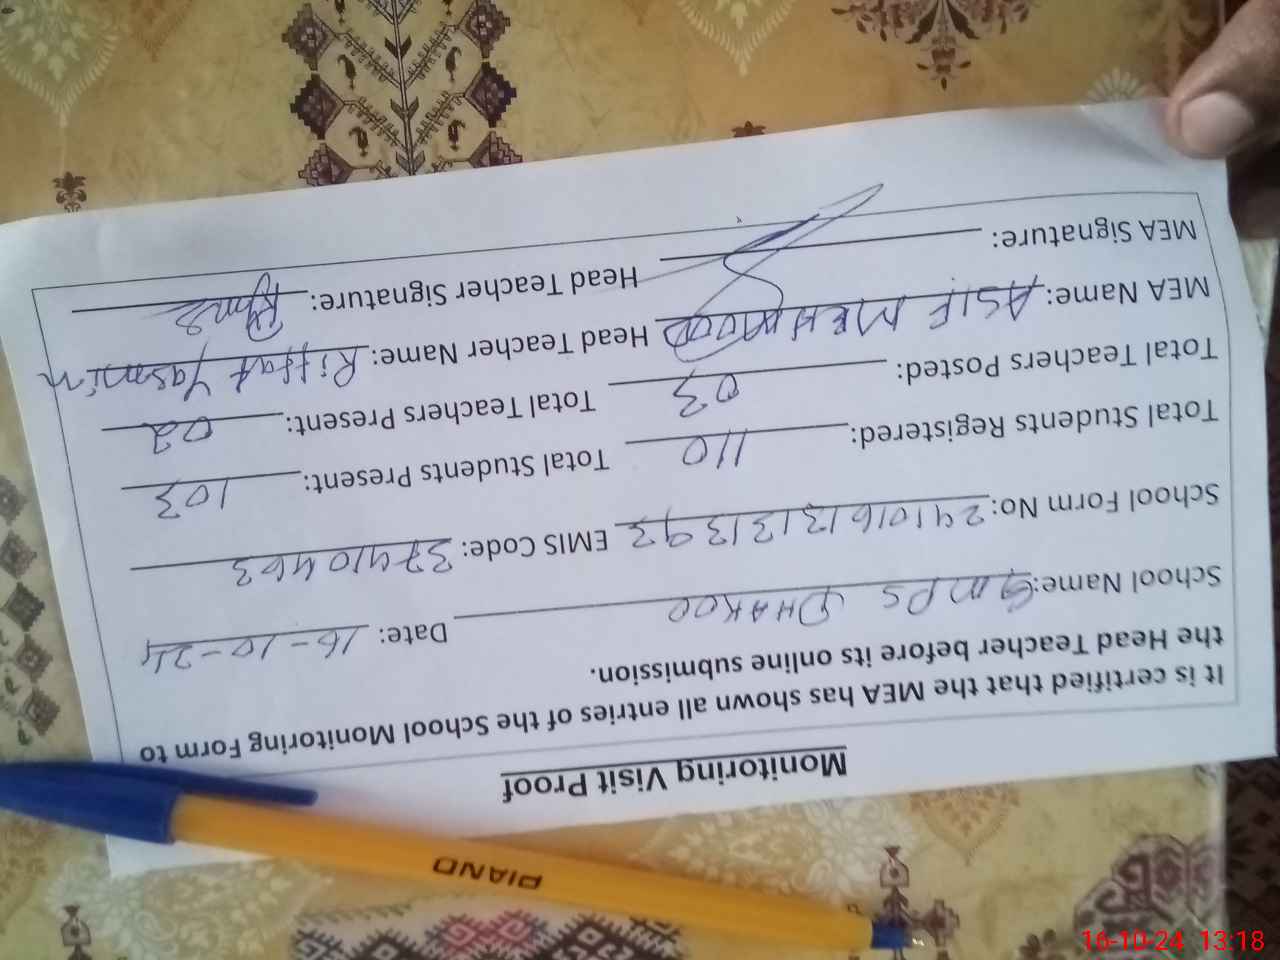 Monitoring Visit Proof
It is certified that the MEA has shown all entries of the School Monitoring Form to
the Head Teacher before its online submission.
School Name: GMPS DHAKOO Date: 16-10-24
School Form No: EMIS Code: 37410463
Total Students Registered: 110 Total Students Present: 103
Total Teachers Posted: 03 Total Teachers Present: 02
MEA Name: ASIF MEHMOOD Head Teacher Name: Riffat Yasmin
MEA Signature: Head Teacher Signature:
PIANO
16-10-24 13:18